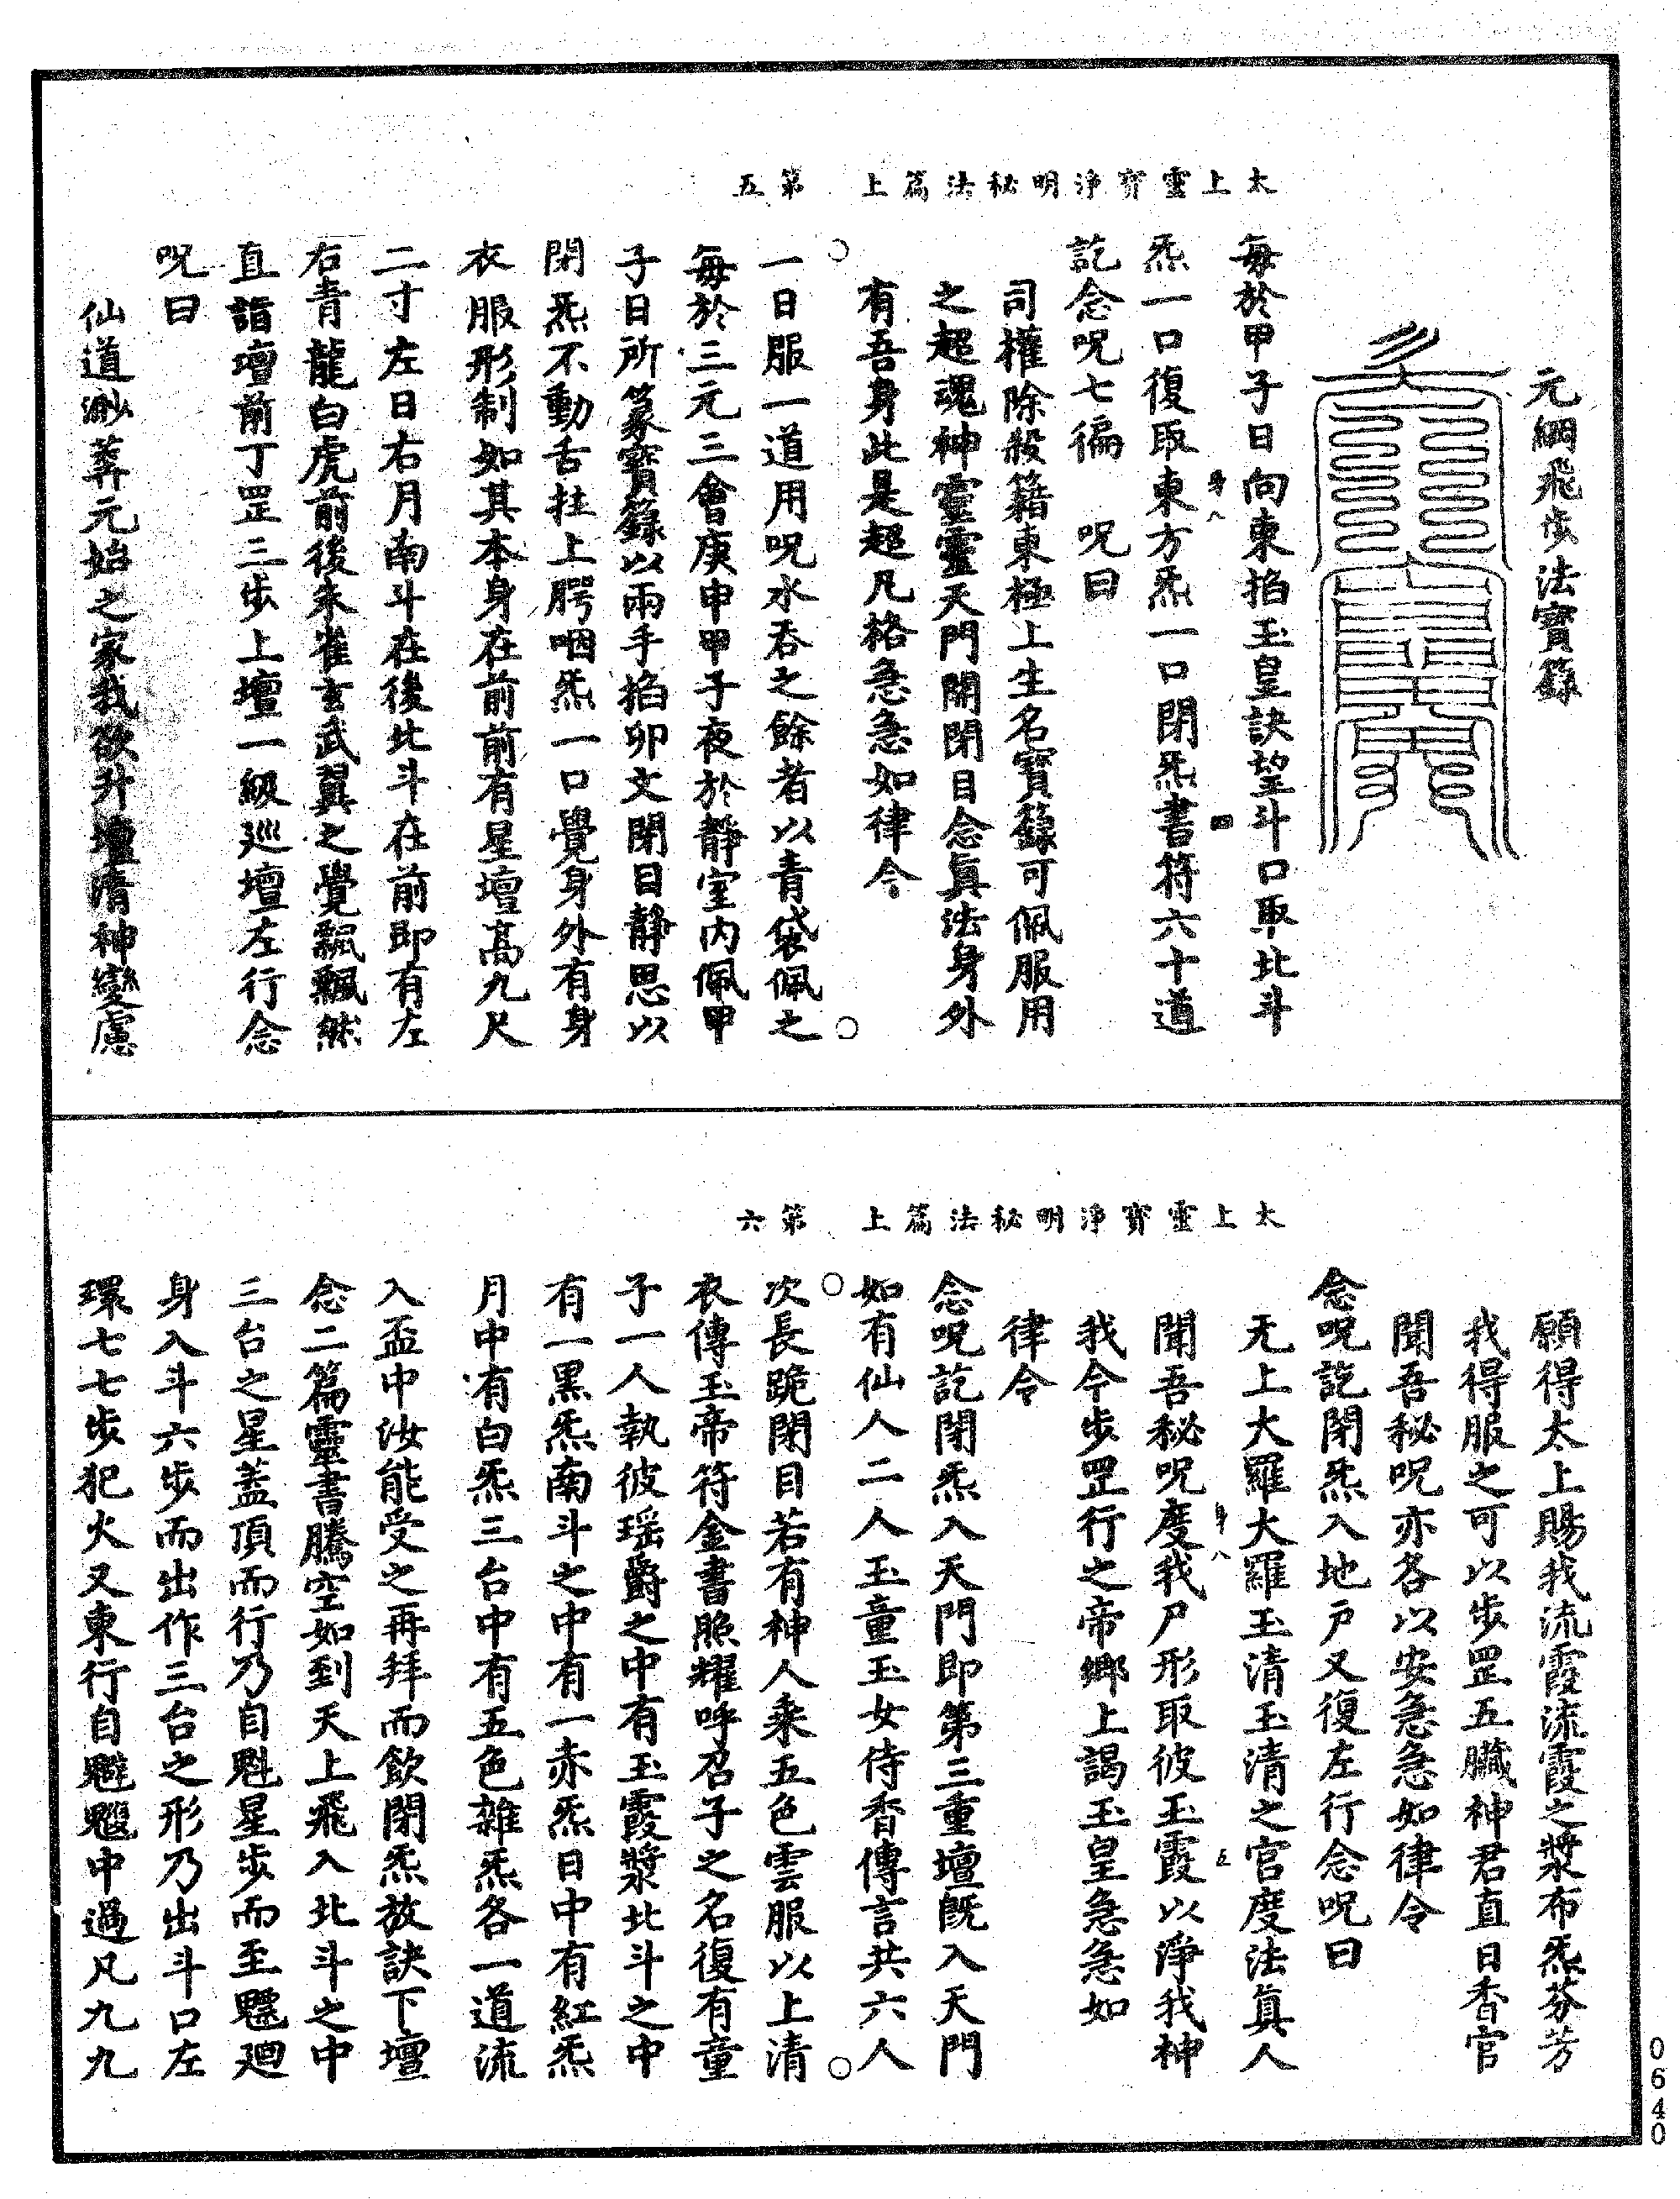 太上靈寶淨明秘法篇上　第五
元綱飛步法寶籙
每於甲子日向東掐玉皇訣望斗口取北斗
炁一口復取東方炁一口閉炁書符六十道
訖念呪七徧　呪曰
司權除殺籍東極上生名寶籙可佩服用
之超魂神靈靈天門開閉目念真法身外
有吾身此是超凡格急急如律令
一日服一道用呪水吞之餘者以青袋佩之
每於三元三會庚申甲子夜於靜室內佩甲
子日所篆寶籙以兩手掐卯文閉目靜思以
閉炁不動舌拄上腭咽炁一口覺身外有身
衣服形制如其本身在前前有星壇高九尺
二寸左日右月南斗在後北斗在前即有左
右青龍白虎前後朱雀玄武翼之覺飄飄然
直詣壇前丁罡三步上壇一級巡壇左行念
呪曰
仙道渺莽元始之家我欲升壇清神變慮
太上靈寶淨明秘法篇上　第六
願得太上賜我流霞流霞之漿布炁芬芳
我得服之可以步罡五臟神君直日香官
聞吾秘呪亦各以安急急如律令
念呪訖閉炁入地戶又復左行念呪曰
无上大羅大羅玉清玉清之官度法真人
聞吾秘呪度我尸形取彼玉霞以淨我神
我今步罡行之帝鄉上謁玉皇急急如
律令
念呪訖閉炁入天門即第三重壇既入天門
如有仙人二人玉童玉女侍香傳言共六人
次長跪閉目若有神人乘五色雲服以上清
衣傳玉帝符金書照耀呼召子之名復有童
子一人執彼瑶爵之中有玉霞漿北斗之中
有一黑炁南斗之中有一赤炁日中有紅炁
月中有白炁三台中有五色雜炁各一道流
入盃中汝能受之再拜而飲閉炁放訣下壇
念二篇靈書騰空如到天上飛入北斗之中
三台之星蓋頂而行乃自魁星步而至魒迴
身入斗六步而出作三台之形乃出斗口左
環七七步犯火又東行自魒魓中過凡九九
0640